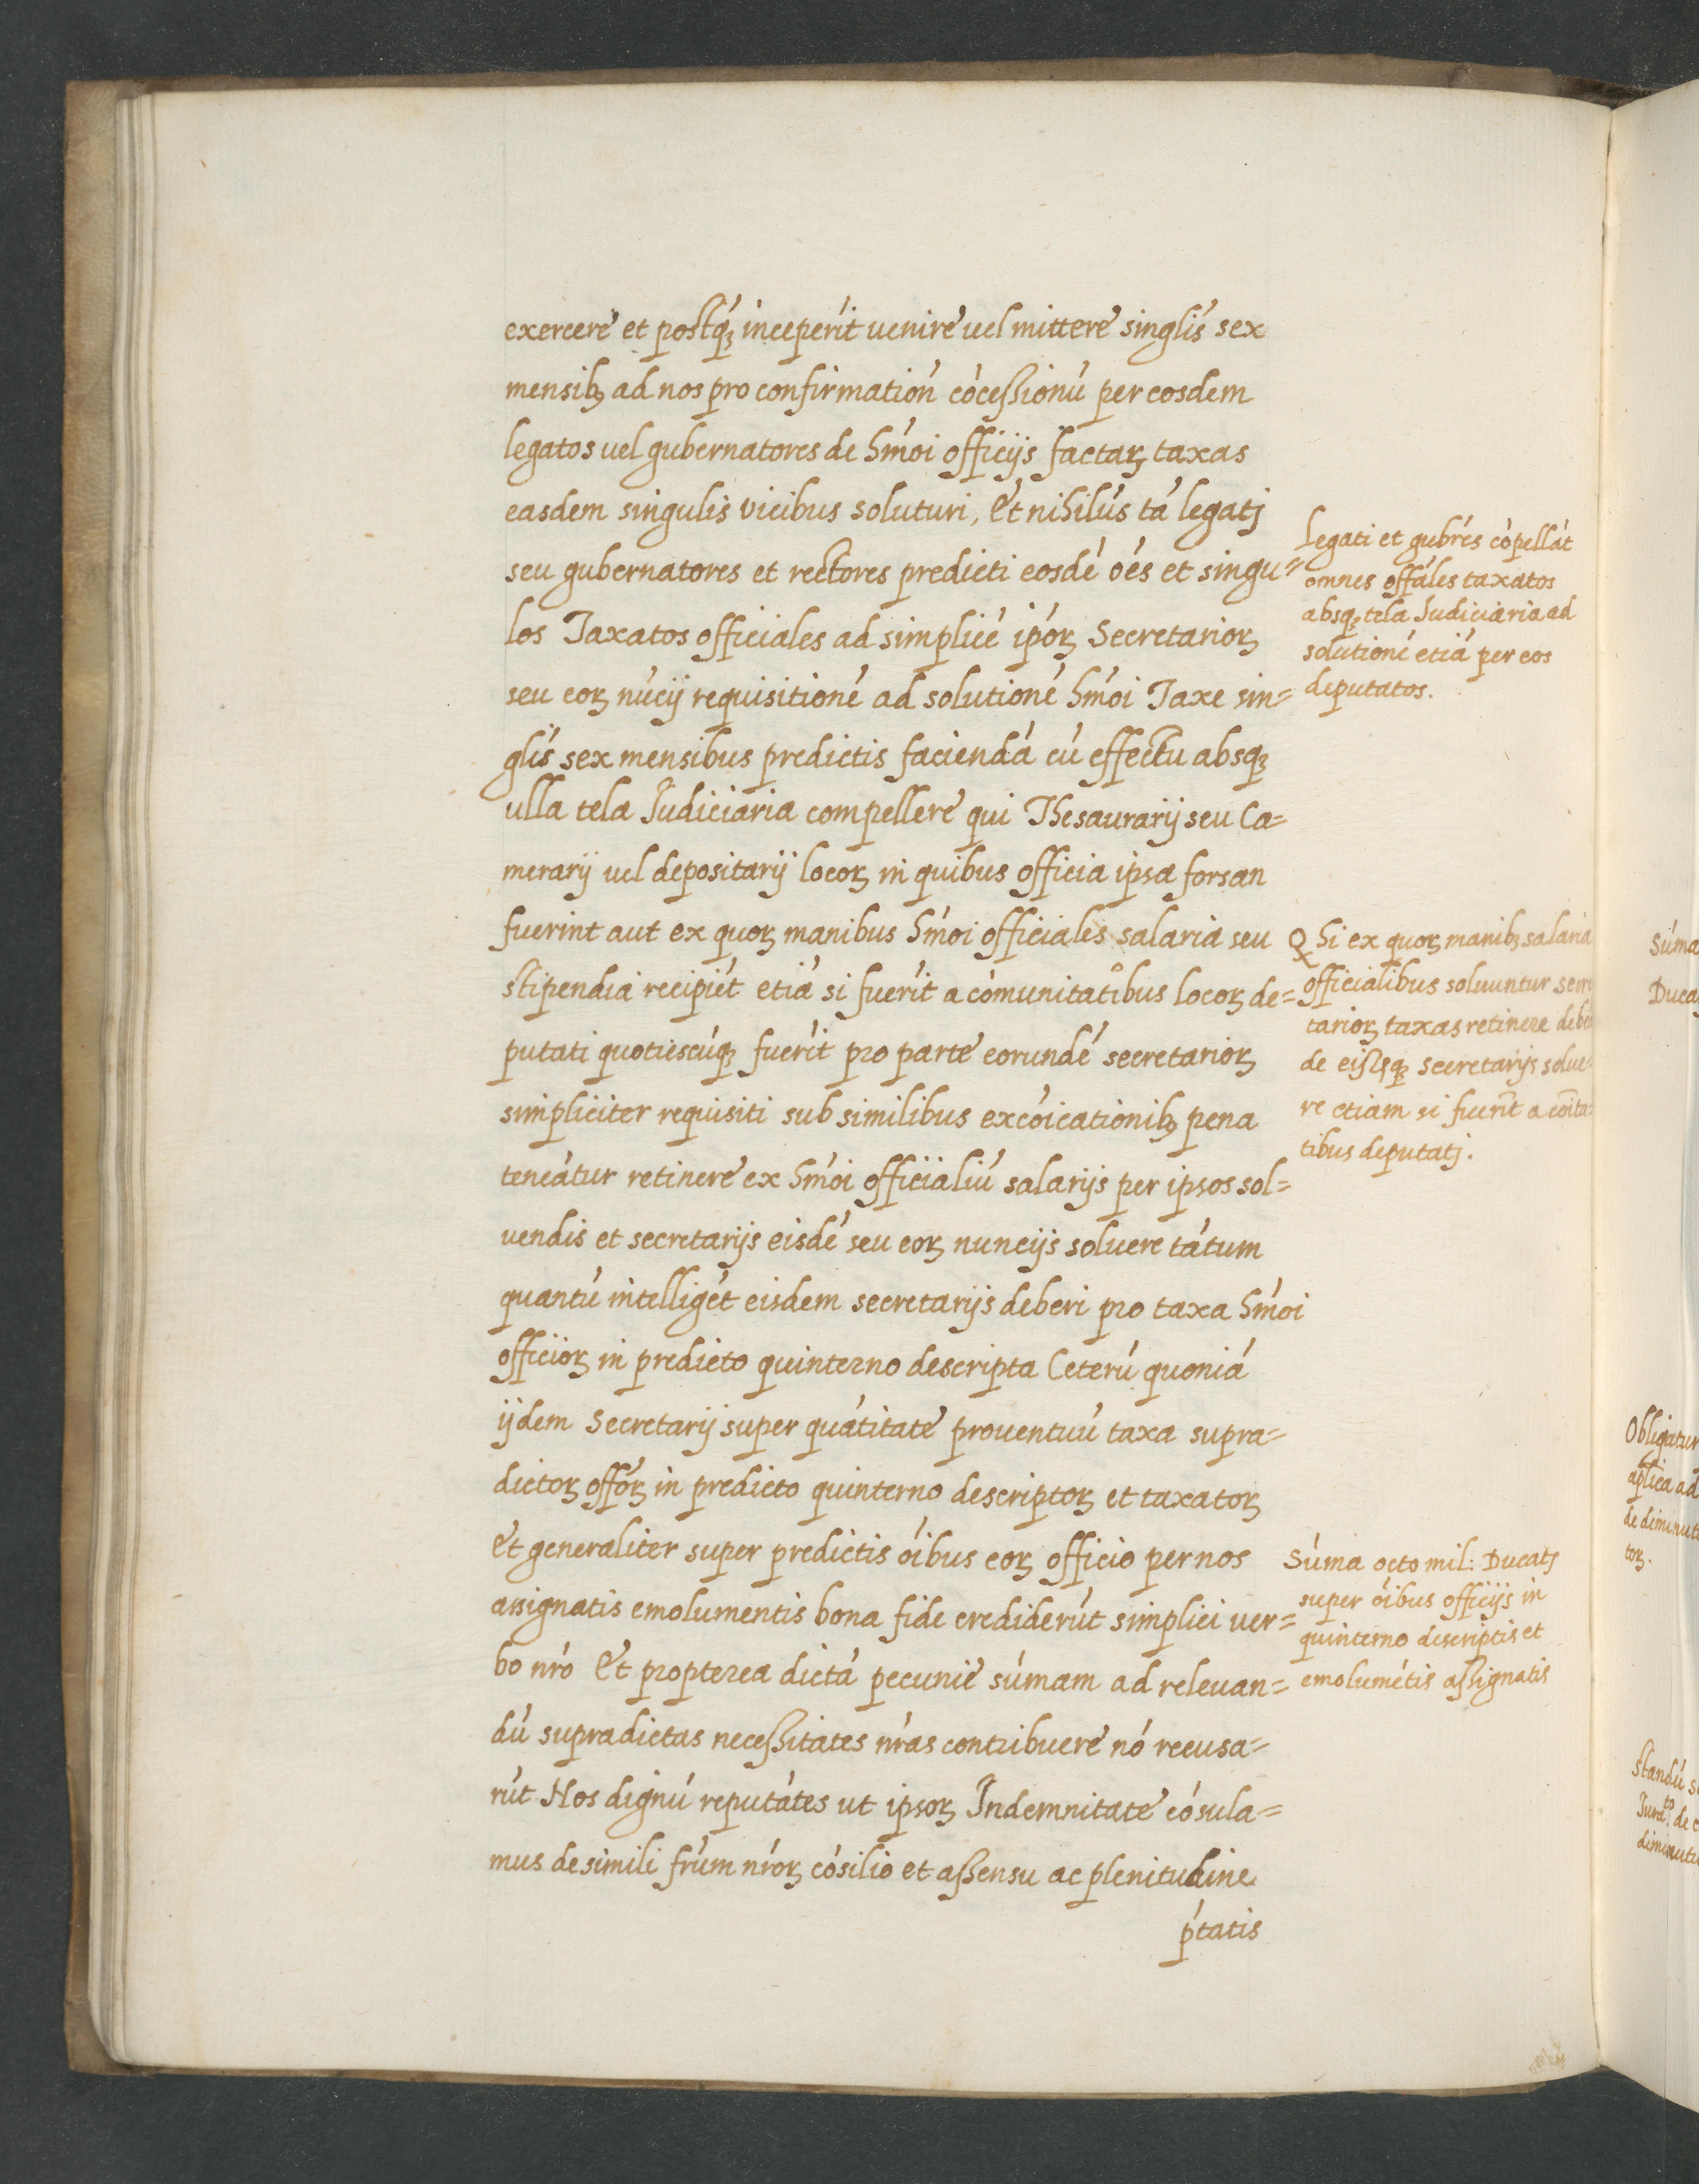 exercere et postq́ꝫ inceperit uenire uel mittere singĺis sex
mensibꝫ ad nos pro confirmatioń cócessionú per eosdem
legatos uel gubernatores de hḿoi officijs factaꝝ taxas
easdem singulis vicibus soluturi, Et nihilús tá legatj
seu gubernatores et rectores predicti eosdé óés et singu=
los Taxatos officiales ad simplicé ipóꝝ Secretarioꝝ
seu eoꝝ núcij requisitioné ad solutioné hḿoi Taxe sin=
glís sex mensibus predictis faciendá cú effectu absqꝫ
ulla tela Iudiciaria compellere qui Thesaurarij seu Ca=
merarij uel depositarij locoꝝ in quibus officia ipsa forsan
fuerint aut ex quoꝝ manibus hḿoi officiales salaria seu
stipendia recipiét etiá si fuerít a cómunitatibus locoꝝ de=
putati quotiescúqꝫ fuerít pro parte eorundé secretarioꝝ
simpliciter requisiti sub similibus excóicationibꝫ pena
teneátur retinere ex hḿoi officialiú salarijs per ipsos sol=
uendis et secretarijs eisdé seu eoꝝ nuncijs soluere tátum
quantú intelligét eisdem secretarijs deberi pro taxa hḿoi
officioꝝ in predicto quinterno descripta Ceterú quoniá
ijdem Secretarij super quátitate prouentuú taxa supra=
dictoꝝ offóꝝ in predicto quinterno descriptoꝝ et taxatoꝝ
Et generaliter super predictis óibus eoꝝ officio per nos
assignatis emolumentis bona fide crediderút simplici uer=
bo nró Et propterea dictá pecunie súmam ad releuan=
dú supradictas necessitates nŕas contribuere nó recusa=
rút Nos dignú reputátes ut ipsoꝝ Indemnitate cósula=
mus de simili frúm nŕoꝝ cósilio et assensu ac plenitudine
ṕtatis
Legati et gubrés cópellát
omnes offáles taxatos
absqꝫ tela Iudiciaria ad
solutioné etiá per eos
deputatos.
Q hi ex quoꝝ manibꝫ salaria
officialibus soluuntur
tarioꝝ taxas retinere
de eisqꝫ secretarijs solue=
re etiam si fuerít a cóita=
tibus deputatj.
Súma octo mil: Ducatj
super óibus officijs in
quinterno descriptis et
emolumétis assignatis
Súma
Obligatur
aplica ad
toꝝ.
Standú